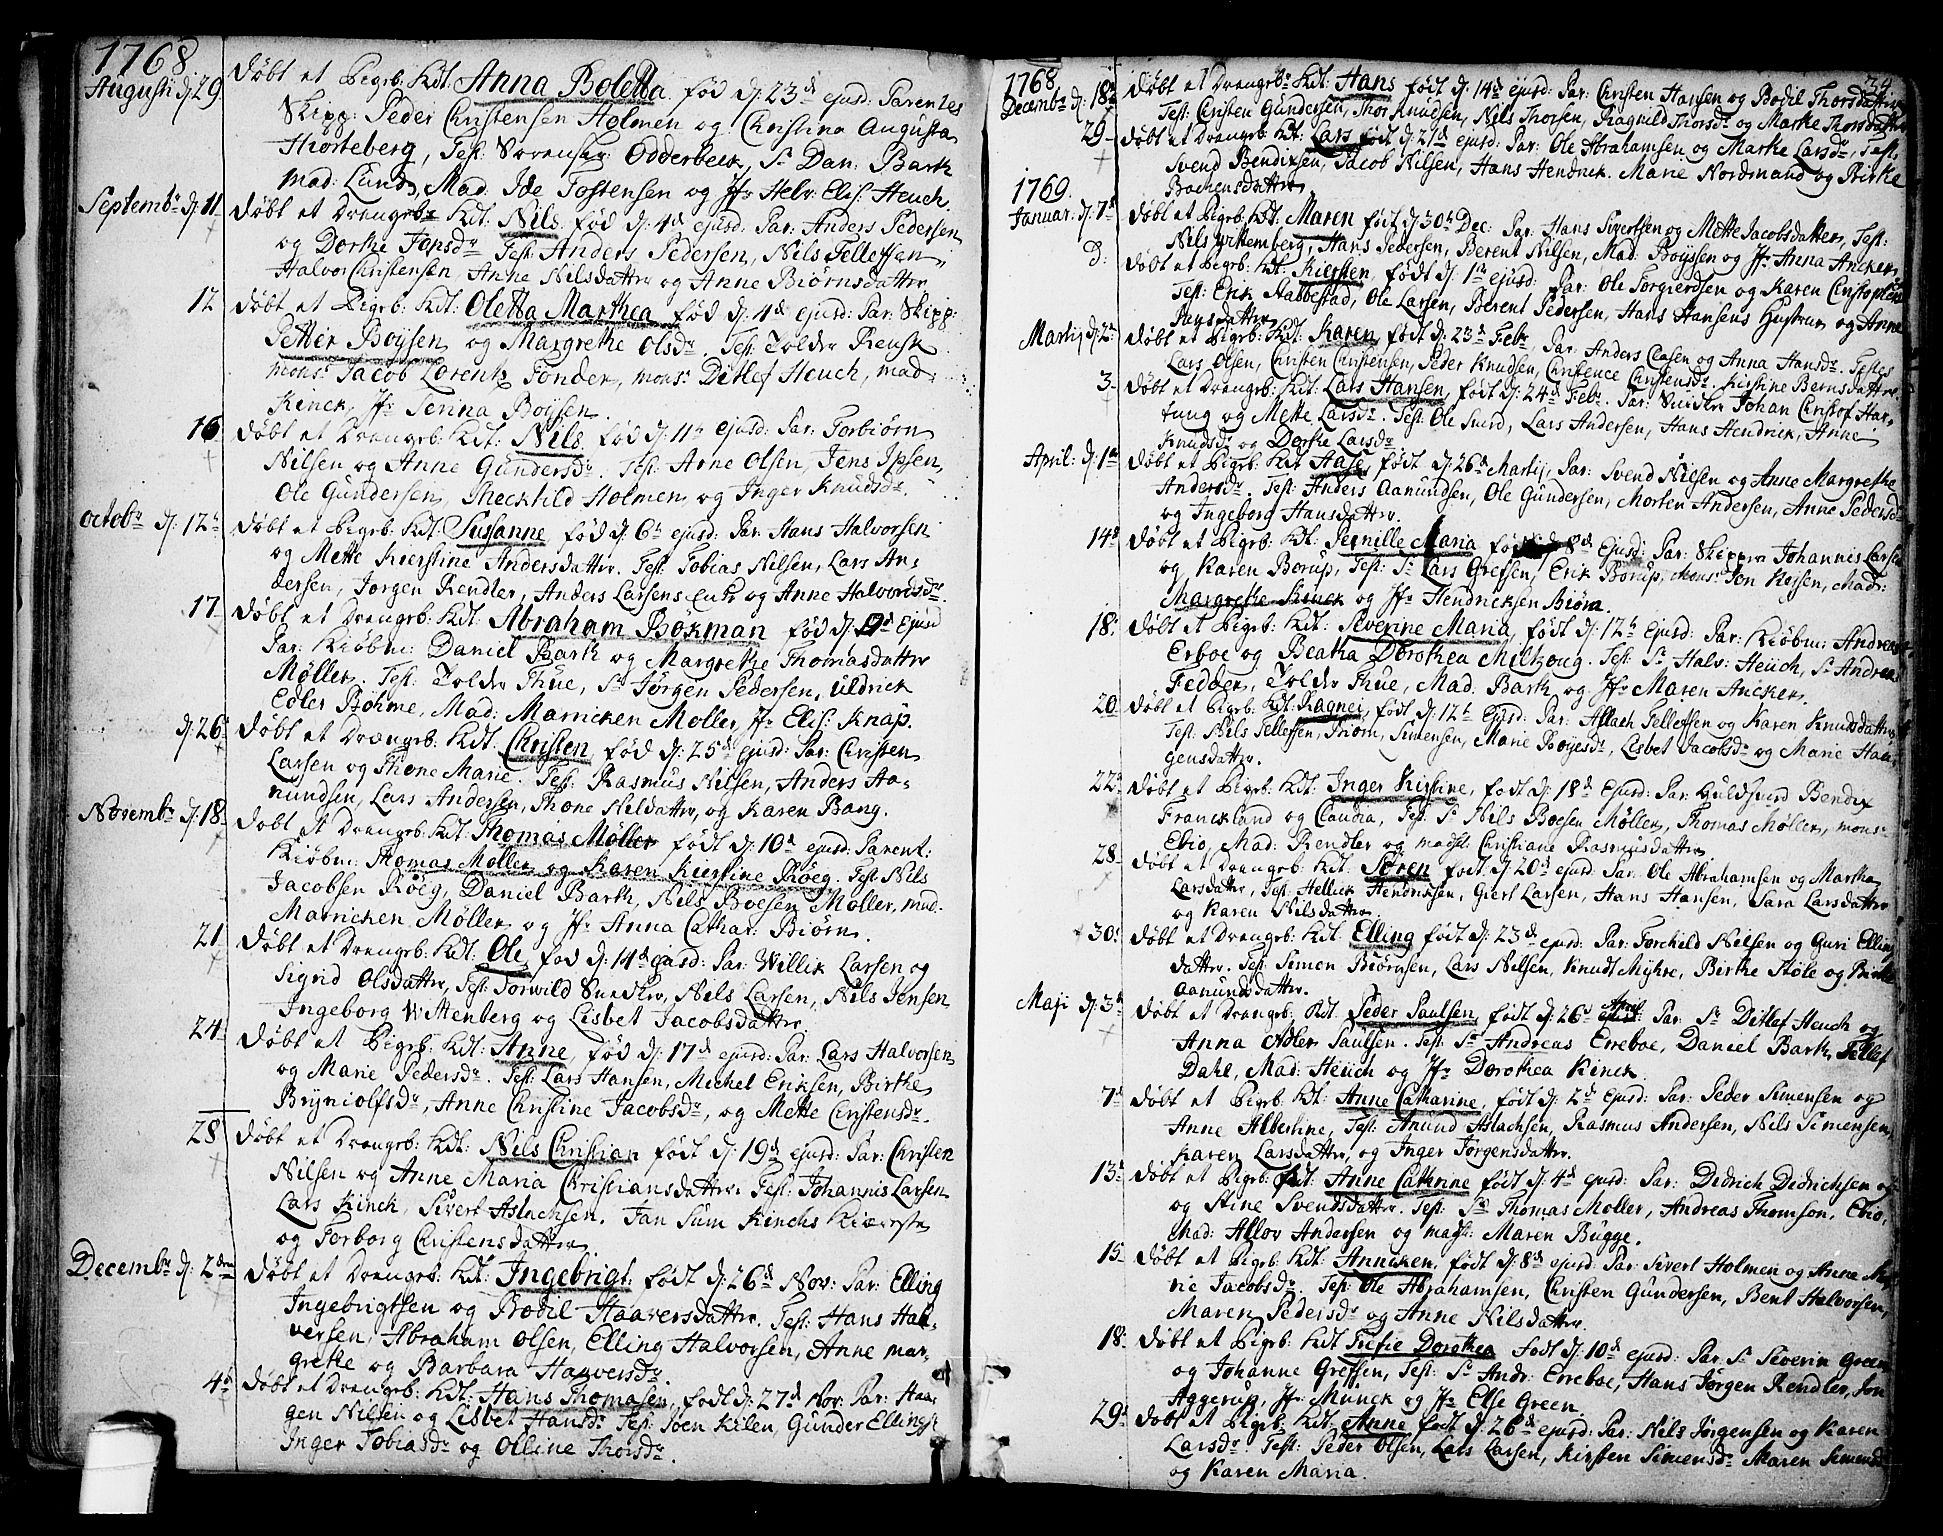 1768
Augusti d: 29. Døbt et Pigeb: Kdt: Anna Boletta. fød d: 23d ejusd: Parentes
Skipp: Peder Christensen Holmen og Christina Augusta
Thorteberg, Test: Odderbeck, Sr Dan: Bark
Mad: Lund, Mad. Ide Tostensen og Jfr Helv: Elis: Heuch.
Septembr d: 11 Døbt et Drengeb: Kdt: Nils. fød d: 4d ejusd: Par: Anders Pedersen
og Dorthe Jensdr Test: Anders Pedersen, Nils Tellefsen,
Halvor Christensen Anne Nilsdattr og Anne Biørnsdattr
12 Døbt et Pigeb: Kdt: Oletta Marthea fød d: 4d ejusd: Par: Skipp:
Petter Boysen og Margrethe Olsdr. Test: Toldr Rensk
mons: Jacob Lorentz Fonder, mons: Ditlef Heuch, mad:
Kinck, Jfr Senna Boysen.
16 Døbt et Drengeb: Kdt: Nils. fød d: 11t ejusd: Par: Torbiørn
Nilsen og Anne Gundersdr. Test: Arne Olsen, Jens Ipsen,
Ole Gundersen, Theckild Holmen og Inger Knudsdr.
Octobr d: 12t Døbt et Pigeb: Kdt: Susanne, fød d: 6t ejusd: Par: Hans Halvorsen
og Mette Kierstine Andersdattr. Test: Tobias Nilsen, Lars An-
dersen, Jørgen Rendler, Anders Larsens og Anne Halvordsdr.
17 Døbt et Drengeb: Kdt: Abraham Bøkman fød d: 9d Ejusd
Par: Kiøbm: Daniel Bark og Margrethe Thomasdattr
Møller. Test: Toldr Thue, Sr Jørgen Pedersen, Uldrick
Edler Bøhme, Mad: Maricken Møller, Jfr Elis: Knap.
d: 26 Døbt et Drengeb: Kdt: Christen, fød d: 25d ejusd: Par: Christen
Larsen og Thone Marie. Test: Rasmus Nilsen, Anders Aa-
nundsen, Lars Andersen, Thone Nilsdattr, og Karen Bang.
Novembr d: 18. Døbt et Drengeb: Kdt: Thomas Møller født d: 10d ejusd: Parent:
Kiøbm: Thomas Møller og Karen Kierstine Røeg. Test: Nils
Jacobsen Røeg, Daniel Bark, Nils Boesen Møller, mad.
Maricken Møller og Jfr Anna Cathar: Biørn.
21 Døbt et Drengeb: Kdt: Ole, fød d: 14d ejusd: Par: Willik Larsen og
Sigrid Olsdattr, Test: Torwild Snedkr, Nils Larsen, Nils Jensen
Ingeborg Wittenberg og Lisbet Jacobsdattr.
24 Døbt et Pigeb: Kdt: Anne, fød d: 17d ejusd: Par: Lars Halvorsen
og Marie Pedersdr. Test: Lars Hansen, Michel Eriksen, Birthe
Bryniolfsdr, Anne Christine Jacobsdr, og Mette Christensdr.
28 Døbt et Drengeb: Kdt: Nils Christian født d: 19d ejusd: Par: Christen
Nilsen og Anne Maria Christiansdattr. Test: Johannis Larsen
Lars Kinck, Sivert Aslachsen. Jan Sum Kinchs Kiæreste
og Torborg Christensdattr.
Decembr d: 2den Døbt et Drengeb: Kdt: Ingebrigt. født d: 26d Nov: Par: Elling
Ingebrigtsen og Bodil Haaversdattr. Test: Hans Hal-
versen, Abraham Olsen, Elling Halvorsen, Anne mar-
grethe og Barbara Haaversdr.
4d Døbt et Drengeb: Kdt: Hans Thomasen, født d: 27d Nov. Par: Haa-
gen Nilsen og Lisbet Hansdr Test: Søen Kilen, Gunder Ellings
Inger Tobiasdr og Olline Thorsdr.
34.
1768
Decembr d: 18d Døbt et Drengeb: Kdt: Hans født d: 14d ejusd: Par: Christen Hansen og Bodil Thorsdattr
Test: Christen Gundersen, Thor Knudsen, Nils Thorsen, Ragnild Thorsdr og Marthe Thorsdattr
29 Døbt et Drengeb: Kdt: Lars født d: 21d ejusd: Par: Ole Abrahamsen og Marthe Larsdr, Test:
Svend Bendixsen, Jacob Nilsen, Hans Hendrick. Marie Nordmand og Birthe
Bochensdattr.
1769.
Januar: d: 7d Døbt et Pigeb: Kdt: Maren født d: 30t Dec: Par: Hans Sivertsen og Mette Jacobsdatter, Test:
Nils Wittemberg, Hans Pedersen, Berent Nilsen, Mad: Boyssen og Jfr Anna Ancker.
d. Døbt et Pigeb: Kdt: Kiersten, født d: 1te ejusd: Par: Ole Torgierdsen og Karen Christophers
Test: Erik Stabbestad, Ole Larsen, Berent Pedersen, Hans Hansens Hustrue og Anne
Martij d: 2d Døbt et Pigeb: Kdt: Karen født d: 23d Febr. Par: Anders Clasen og Anna Hansdr. Testes
Lars Olsen, Christen Christensen, Peder Knudsen, Christence Christensdr. Kirstine Berntsdattr.
3. Døbt et Drengeb: Kdt: Lars Hansen, født d: 24d Febr. Par: Snedkr Johan Christof Har-
tung og Mette Larsdr. Test: Ole Smed, Lars Andersen, Hans Hendrick, Anne
Knudsdr og Dorthe Larsdr
April: d: 1te Døbt et Pigeb: Kdt Aase, født d: 26d Martij, Par: Svend Nilsen og Anne Margrethe
Andersdr. Test: Anders Aanundsen, Ole Gundersen, Morten Andersen, Anne Pedersdr
og Ingeborg Hansdattr.
14d Døbt et Pigeb: Kdt: Pernille Maria 8d Ejusd: Par: Skippr Johannis Larsen
og Karen Borup, Test: Sr Lars Gressen, Erik Borup, Mons: Jon Kojsen, Mad:
Margrethe Kinck og Jfr Hendricksen Biørn.
18. Døbt et Pigeb: Kdt: Severine Maria, født d: 12t Ejusd: Par: Kiøbm: Andreas
Erboe og Beatha Dorothea Miltzoug. Test: Sr Halv: Heuch, Sr Andreas
Fedder, Toldr Thue, Mad. Bark, og Jfr Maren Ancker.
20 Døbt et Pigeb: Kdt: Ragnei, født d: 12t Ejusd: Par: Allach Tellefsen og Karen Knudsdattr,
Test: Nils Tellefsen, Thom, Simensen, Marie Boyesdr, Lisbet Jacobsdr og Marie Haa-
gensdattr.
22 Døbt et Pigeb: Kdt: Inger Kirstine, født d: 18d Ejusd: Par: Guldsmed Bendix
Franckland og Claudia, Test: Sr Nils Boesen Møller, Thomas Møller, mons:
Ebio, Mad: Rendler og madsl: Christiane Rasmusdattr
28. Døbt et Drengeb: Kdt: Søren født d: 20d ejusd: Par: Ole Abrahamsen og Martha
Larsdattr, Test: Hellick Hendricksen, Giert Larsen, Hans Hansen, Sara Larsdattr
og Karen Nilsdattr.
30. Døbt et Drengeb: Kdt: Elling født d: 23d ejusd: Par: Torchild Nilsen og Guri Elling
dattr. Test: Simon Biørnsen, Lars Nilsen, Knudt Myhre, Birthe Støle og Birthe
Aanundsdattr.
Maji d: 3d Døbt et Drengeb: Kdt: Peder Paulsen, født d: 26d April Par: Sr Ditlef Heuch og
Anna Adler Paulsen. Test: Sr Andreas Erreboe, Daniel Bark, Tellef
Dahl, Mad: Heuch og Jfr Dorothea Kinck.
7d Døbt et Pigeb: Kdt: Anne Catharine, født d: 2d Ejusd: Par: Peder Simensen og
Anne Albertine, Test: Amund Aslachsen, Rasmus Andersen, Nils Simensen,
Karen Larsdattr, og Inger Jørgensdattr.
13d Døbt et Pigeb: Kdt: Anne Cathrine født d: 4d ejusd: Par: Didrich Didrichsen og
og Stine Svendsdattr. Test: Sr Thomas Møller, Andreas Thomson, Ebio,
Mad: Allov Andersen og madsl: Maren Bugge.
15 Døbt et Pigeb: Kdt: Annicken, født d: 8d ejusd: Par: Sivert Holmen og Anne Ma-
rie Jacobsdr Test: Ole Abrahamsen, Christen Gundersen, Bent Halvorsen,
Maren Pedersdr og Anne Nilsdattr.
18. Døbt et Pigeb: Kdt Dorothea født d: 10d ejusd: Par: Sr Severin Green
og Johanne Greffen, Test: Sr Andr: Erreboe, Hans Jørgen Rendler, Jon
Aggerup, Jfr Munck og Jfr Else Green.
29d Døbt et Pigeb: Kdt: Anne født d: 26d ejusd: Par: Nils Jørgensen og Karen
Larsdr Test: Peder Olsen, Lars Larsen, Kirsten Simensdr Maren Simensd
og Karen Maria.